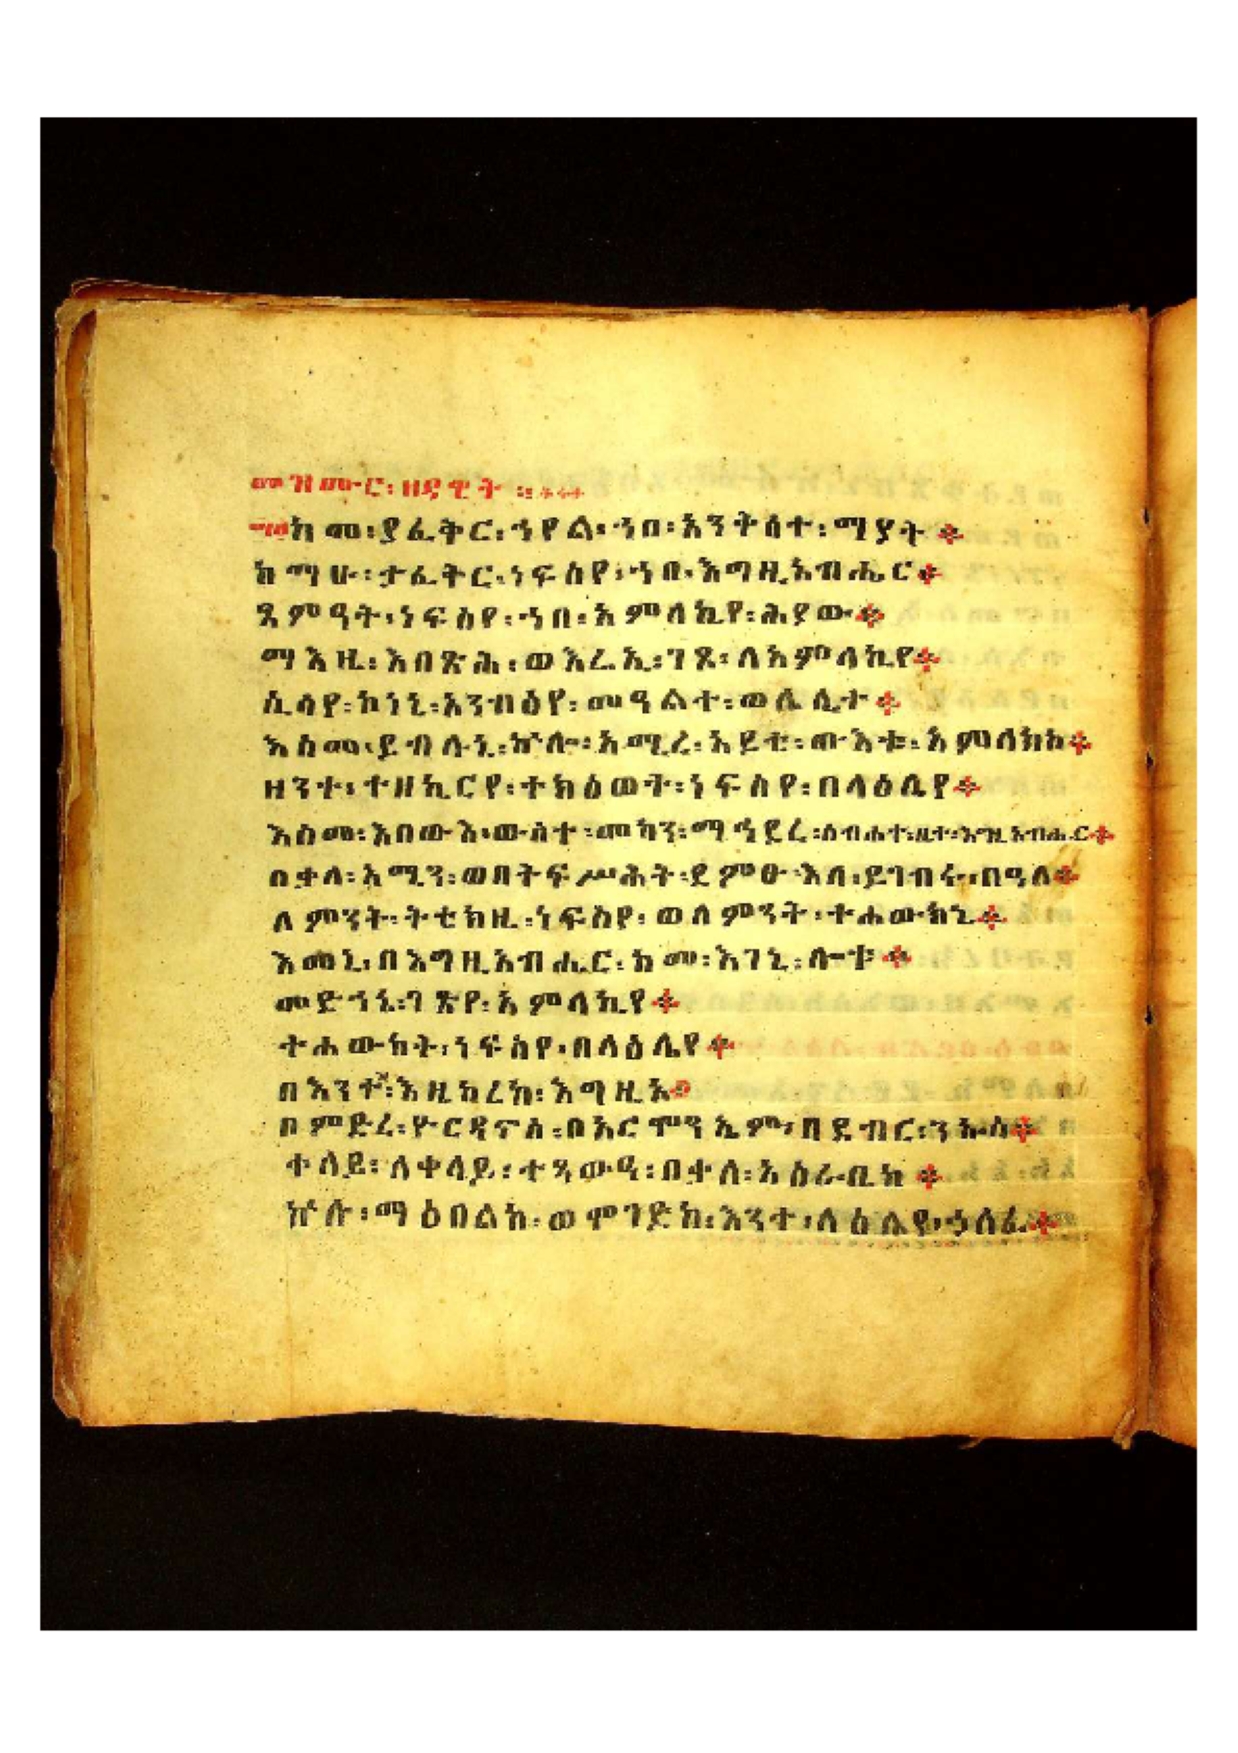 መዝሙር፡ዘዳዊት ።
ከመ፡ያፈቅር፡ኀየል፡ኀበ፡አንቅዕተ፡ማያት ።
ከማሁ፡ታፈቅር፡ነፍስየ፡ኀበ፡እግዚአብሔር ።
ጸምዓት፡ነፍስየ፡ኀበ፡አምላኪየ፡ሕያው ።
ማእዜ፡እበጽሕ፡ወእሬኢ፡ገጾ፡ለአምላኪየ ።
ሲሳየ፡ኮነኒ፡አንብዕየ፡መዓልተ፡ወሌሊተ ።
እስመ፡ይብሉኒ፡ኵሎ፡አሚረ፡አይቴ፡ውእቱ፡አምላክከ ።
ዘንተ፡ተዘኪርየ፡ተክዕወት፡ነፍስየ፡በላዕሌየ ።
እስመ፡እበውእ፡ውስተ፡መካን፡ማኅደረ፡ስብሐተ፡ቤተ፡እግዚአብሔር ።
በቃለ፡አሚን፡ወበትፍሥሕት፡ደምፁ፡እለ፡ይገብሩ፡በዓለ ።
ለምንት፡ትቴክዚ፡ነፍስየ፡ወለምንት፡ተሐውክኒ ።
እመኒ፡በእግዚአብሔር፡ከመ፡እገኒ፡ሎቱ ።
መድኀኔ፡ገጽየ፡አምላኪየ ።
ተሐውከት፡ነፍስየ፡በላዕሌየ ።
በእንተ፡እዜከረከ፡እግዚኦ
በምድረ፡ዮርዳኖስ፡በአርሞንኤም፡በደብር፡ንኡስ ።
ቀላይ፡ለቀላይ፡ተጻውዓ፡በቃለ፡አስራቢከ ።
ኵሉ፡ማዕበልከ፡ወሞገድከ፡እንተ፡ላዕሌየ፡ኃለፈ ።